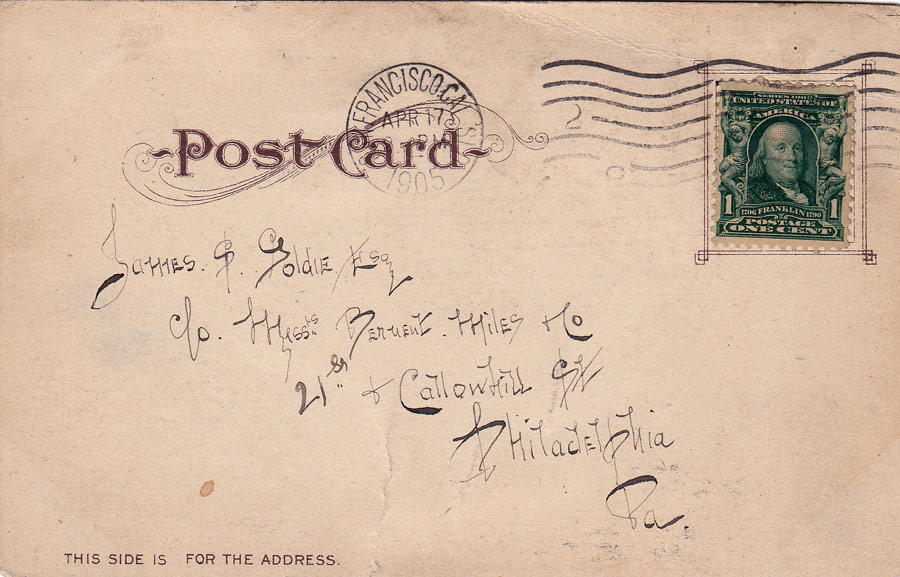 FRANCISCO, CAL.
APR 17
1905
Post Card
SERIES 1902
UNITED STATES OF
AMERICA
1 1706 FRANKLIN 1790 1
POSTAGE
ONE CENT
James. S. Goldie, Esq
c/o. Messrs Bement. Miles & Co
21st & Callowhill St
Philadelphia
Pa.
THIS SIDE IS FOR THE ADDRESS.